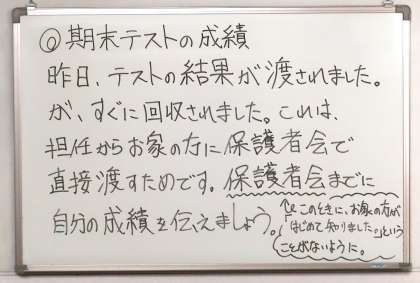 ◎期末テストの成績
昨日、テストの結果が渡されました。
が、すぐに回収されました。これは、
担任からお家の方に保護者会で
直接渡すためです。保護者会までに
自分の成績を伝えましょう。
↑このときに、お家の方が
「はじめて知りました。」という
ことがないように。